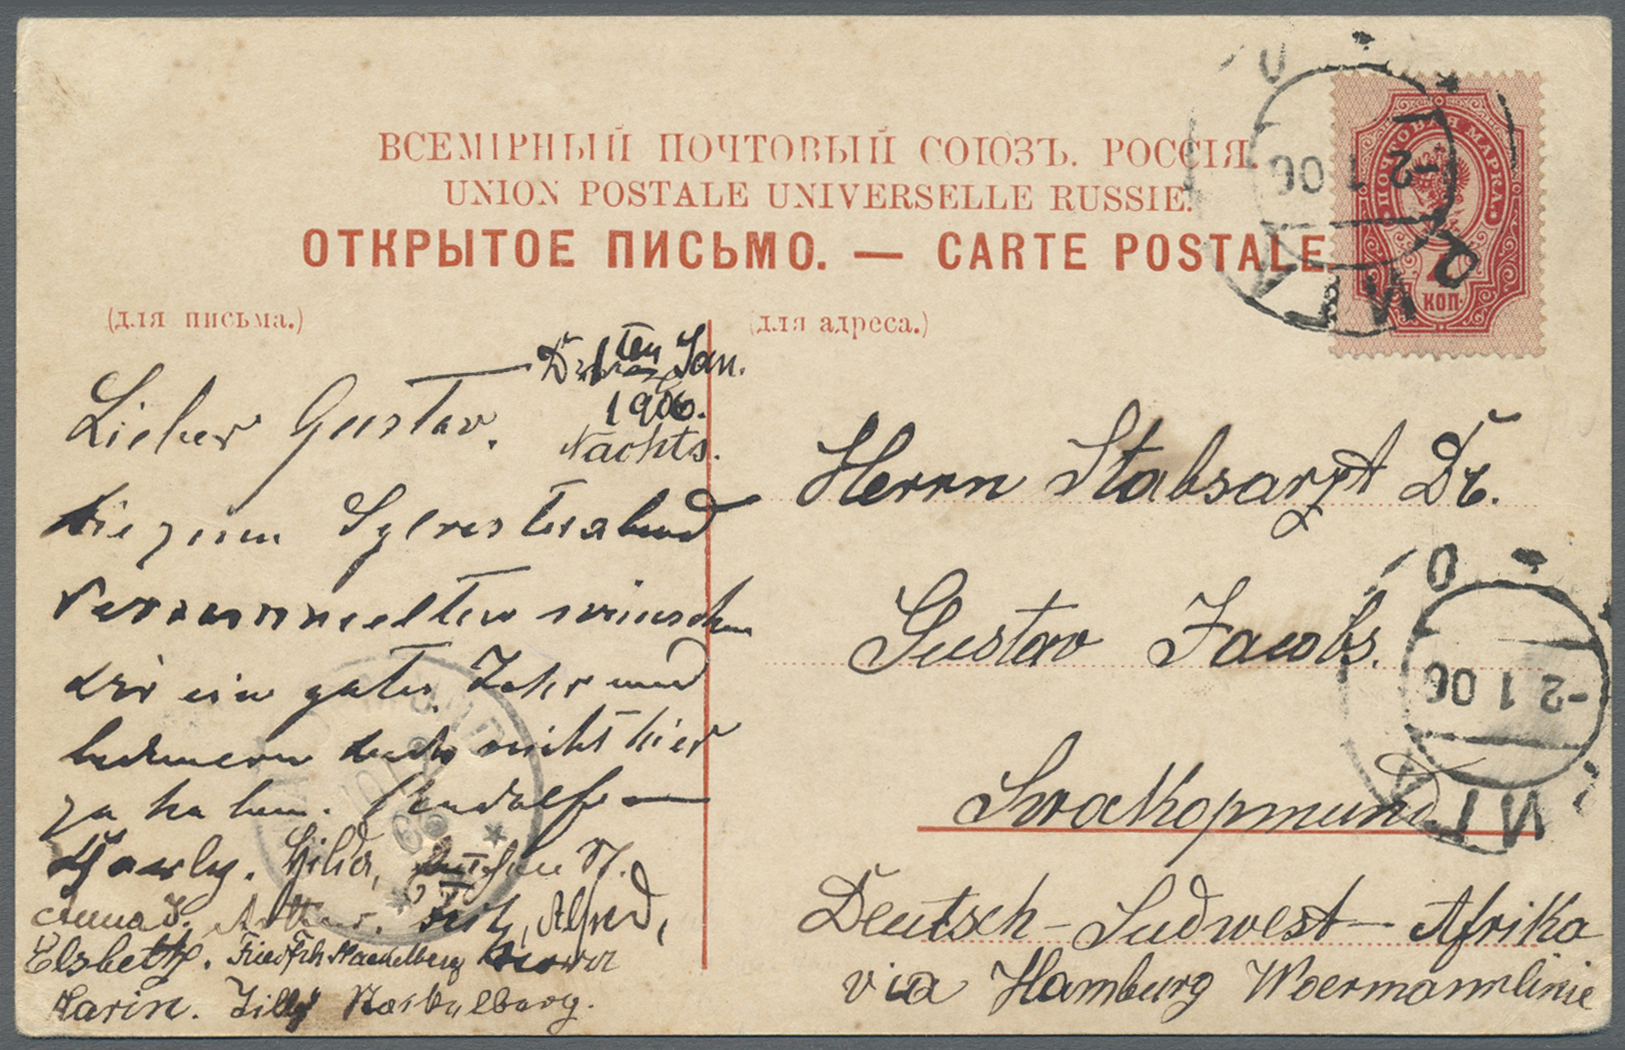 ВСЕМІРНЫЙ ПОЧТОВЫЙ СОЮЗЪ. РОССІЯ.
UNION POSTALE UNIVERSELLE RUSSIE.
ОТКРЫТОЕ ПИСЬМО. — CARTE POSTALE
ПОЧТОВАЯ МАРКА
КОП.
РИГА
-2 1 06
(для письма.)
(для адреса.)
1ten Jan.
1906.
Nachts.
Lieber Gustav.
Die zum Sylvesterabend
Versammelten wünschen
dir ein gutes Jahr und
bedauern dich nicht hier
zu haben.
Hilda,
Anna J. Arthur. Alfred,
Elsbeth. Friedrich Stackelberg
Karin. Lilly Stackelberg.
Herrn Stabsarzt Dr.
Gustav Jacobs.
Swakopmund
Deutsch-Südwest-Afrika
via Hamburg Woermannlinie
РИГА
-2 1 06